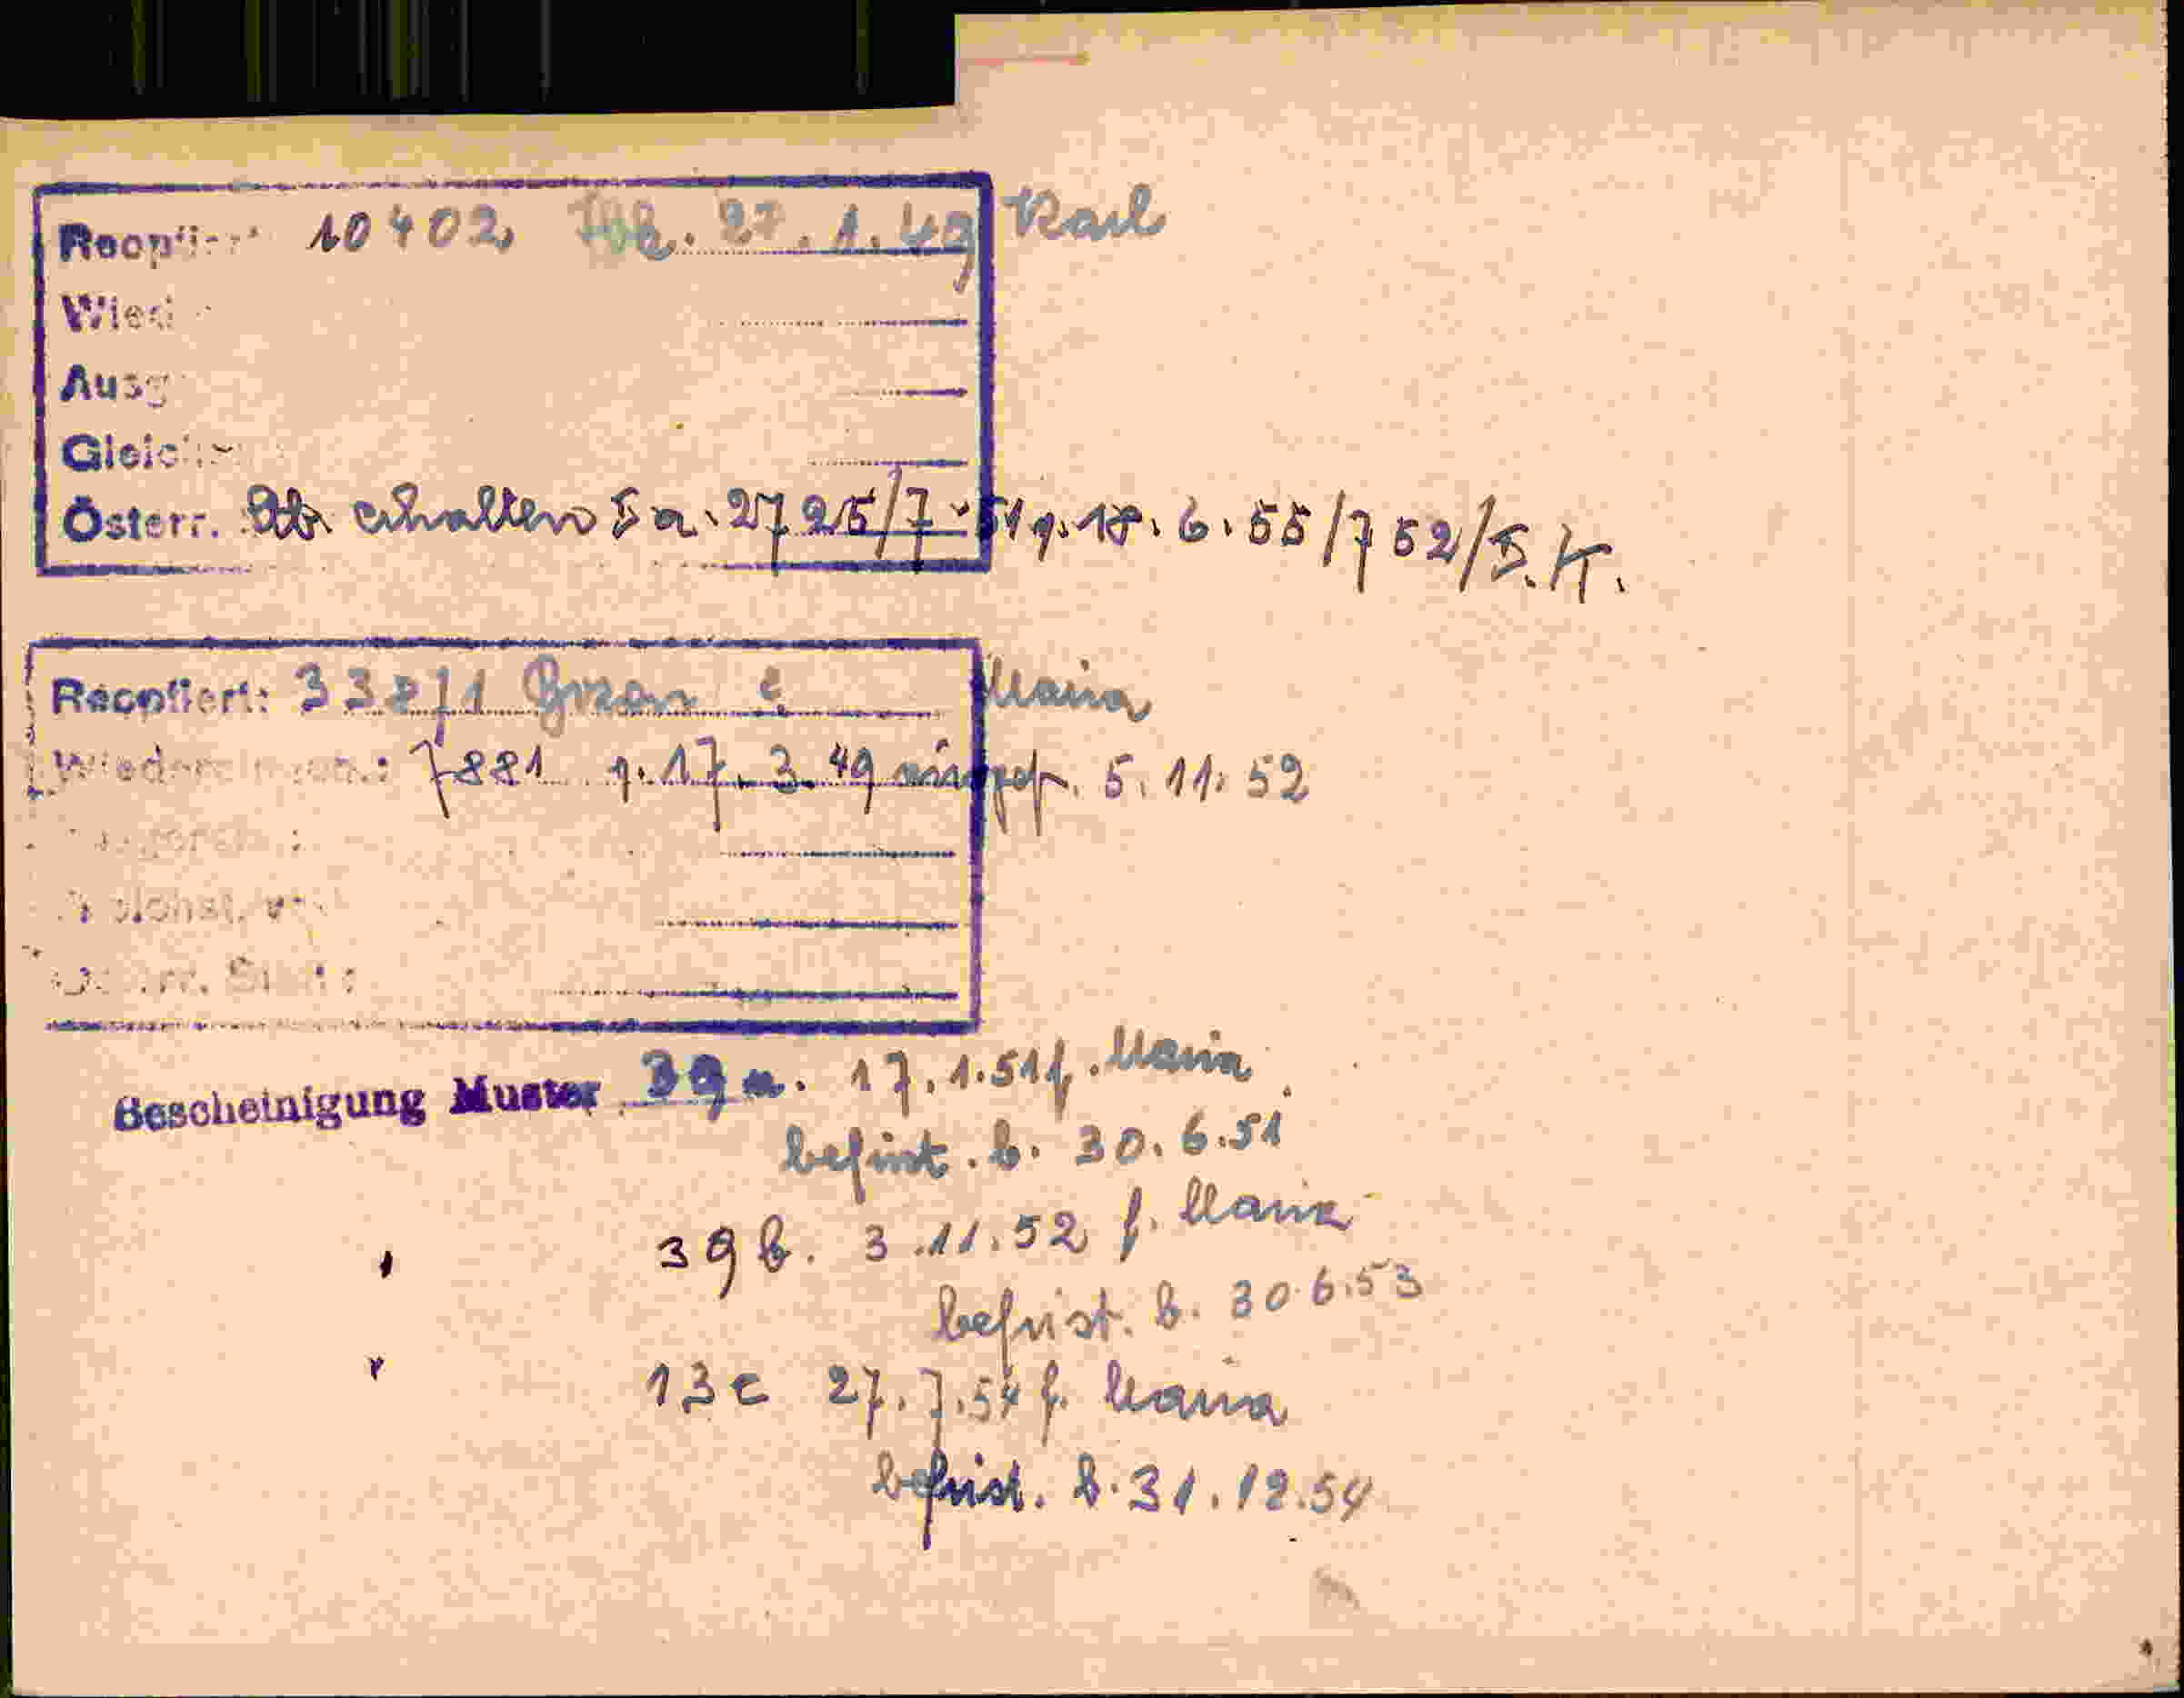 10402 27.1.49 Karl
Wied
Ausg
Gleich
Österr. erhalten 5a. 2725/7-51 g. 18.6.55/752/S.K.
Reoptiert: 33271 Bozen Maria
7881 g. 17.3.49 5.11.52
Österr. St
Bescheinigung Muster 39a. 17.1.51 f. Maria
befrist. b. 30.6.51
39b. 3.11.52 f. Maria
befrist. b. 30.6.53
13c 27.7.54 f. Maria
befrist. b. 31.12.54